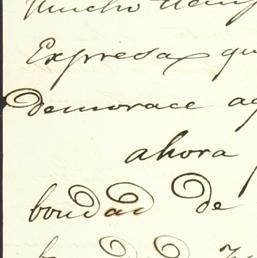 Mucho tiemp
Expresa qu
demorace ag
ahora
bondad de